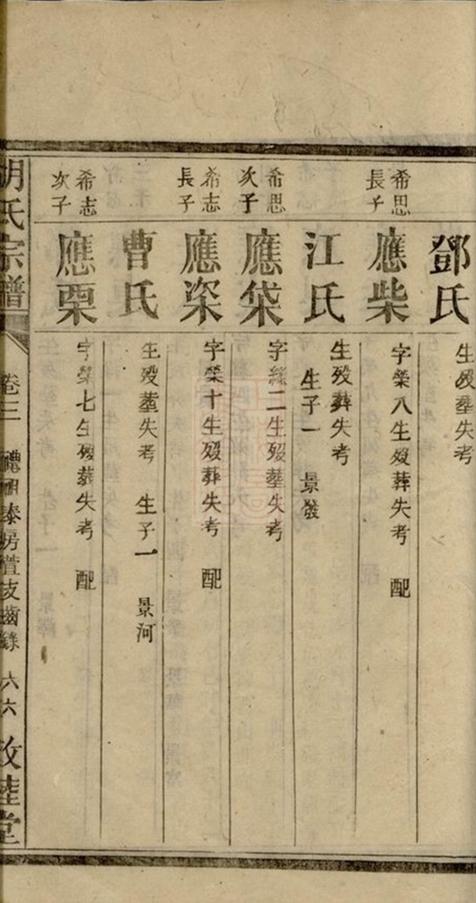 鄧氏
生歿葬失考
希思長子
應柴
字榮八生歿葬失考 配
江氏
生歿葬失考
生子一 景發
希思次子
應棨
字綠二生歿塟失考
希志長子
應
字榮十生歿葬失考 配
曹氏
生歿塟失考 生子一 景河
希志次子
應栗
字榮七生歿葬失考 配
胡氏宗譜
卷三
泰房 支齒錄
六六
敦睦堂